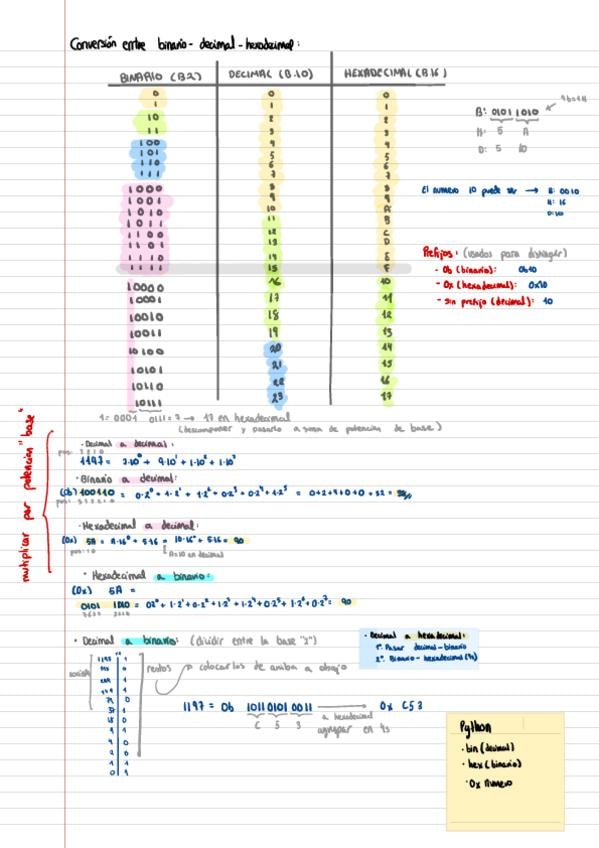 Conversión entre binario - decimal - hexadecimal:
BINARIO (B.2) DECIMAL (B.10) HEXADECIMAL (B.16)
0 0 0
1 1 1
10 2 2
11 3 3
100 4 4
101 5 5
110 6 6
111 7 7
1000 8 8
1001 9 9
1010 10 A
1011 11 B
1100 12 C
1101 13 D
1110 14 E
1111 15 F
10000 16 10
10001 17 11
10010 18 12
10011 19 13
10100 20 14
10101 21 15
10110 22 16
10111 23 17
B: 0101 1010
H: 5 A
D: 5 10
El numero 10 puede ser → B: 0010
H: 16
D: 10
Prefijos: (usados para distinguir)
- 0b (binario): 0b10
- 0x (hexadecimal): 0x10
- sin prefijo (decimal): 10
1 = 0001 0111 = 7 → 17 en hexadecimal
(descomponer y pasarlo a suma de potencia de base)
multiplicar por potencia "base"
· Decimal a decimal:
pos: 3 2 1 0
1197 = 7·10⁰ + 9·10¹ + 1·10² + 1·10³
· Binario a decimal:
(0b) 100110 = 0·2⁰ + 1·2¹ + 1·2² + 0·2³ + 0·2⁴ + 1·2⁵ = 0+2+4+0+0+32 = 38
pos: 5 4 3 2 1 0
· Hexadecimal a decimal:
(0x) 5A = A·16⁰ + 5·16 = 10·16⁰ + 5·16 = 90
pos: 1 0
A=10 en decimal
· Hexadecimal a binario:
(0x) 5A =
0101 1010 = 0·2⁰ + 1·2¹ + 0·2² + 1·2³ + 1·2⁴ + 0·2⁵ + 1·2⁶ + 0·2⁷ = 90
7 6 5 4 3 2 1 0
· Decimal a binario: (dividir entre la base "2")
restos → colocarlos de arriba a abajo
1197 = 0b 1011 0101 0011 → 0x C53
C 5 3
a hexadecimal
agrupar en 4s
· Decimal a hexadecimal:
1º Pasar decimal-binario
2º Binario-hexadecimal (4s)
Python
· bin (decimal)
· hex (binario)
· 0x numero